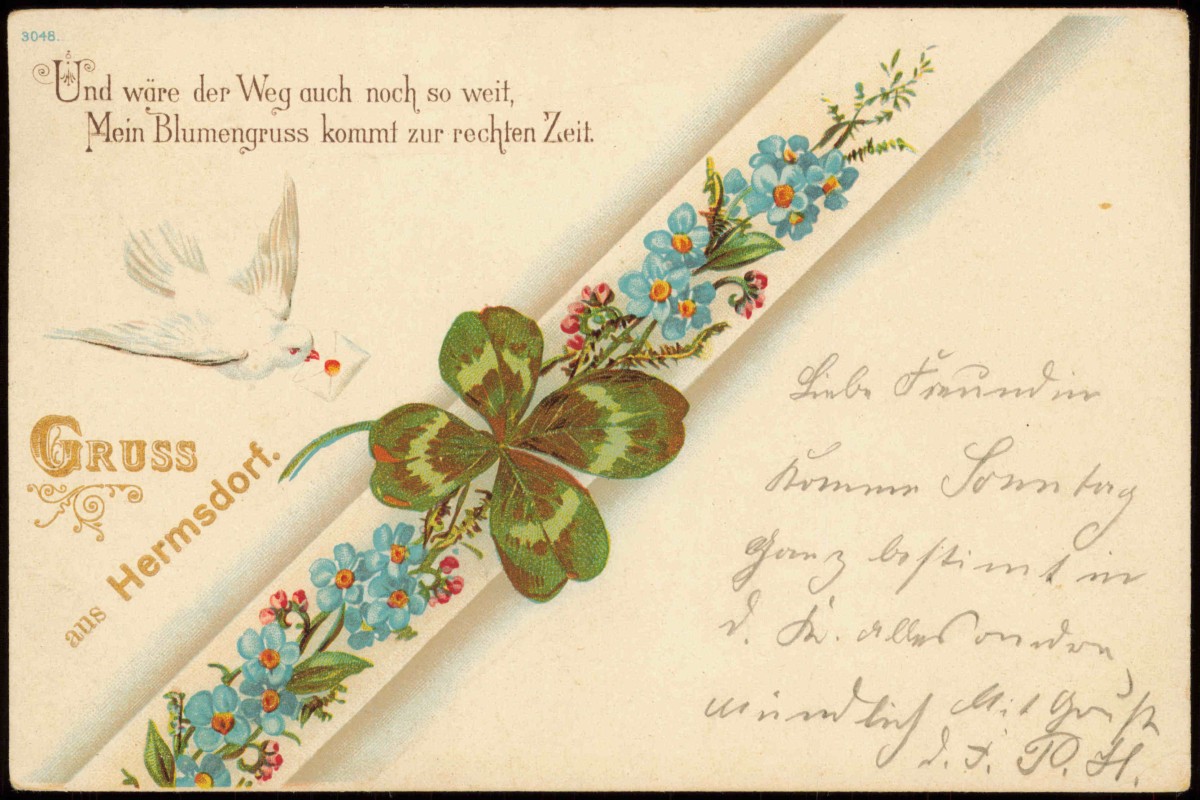 3048.
Und wäre der Weg auch noch so weit,
Mein Blumengruss kommt zur rechten Zeit.
GRUSS
aus Hermsdorf.
Liebe Freundin
Komme Sonntag
Ganz bestimt in
d. K. alles andre
mündlich Mit Gruß
d. F. P. H.